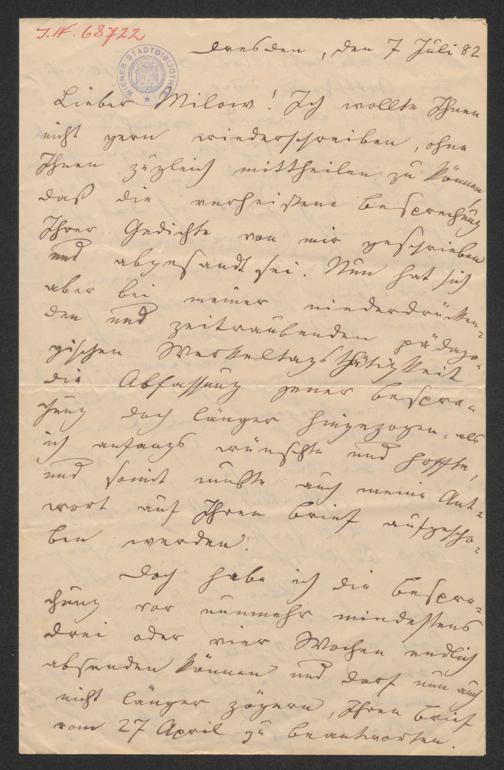 I.N. 68722
WIENER STADTBIBLIOTHEK
Dresden, den 7 Juli 82
Lieber Milow! Ich wollte Ihnen
nicht gern wiederschreiben, ohne
Ihnen zugleich mittheilen zu können,
daß die verheißene Besprechung
Ihrer Gedichte von mir geschrieben
und abgesandt sei. Nun hat sich
aber bei meiner niederdrücken-
den und zeitraubenden pädago-
gischen Werkeltagsthätigkeit
die Abfassung jener Bespre-
chung doch länger hingezogen, als
ich anfangs wünschte und hoffte,
und somit mußte auch meine Ant-
wort auf Ihren Brief aufgescho-
ben werden.
Doch habe ich die Bespre-
chung vor nunmehr mindestens
drei oder vier Wochen endlich
absenden können und darf nun auch
nicht länger zögern, Ihren Brief
vom 27 April zu beantworten.